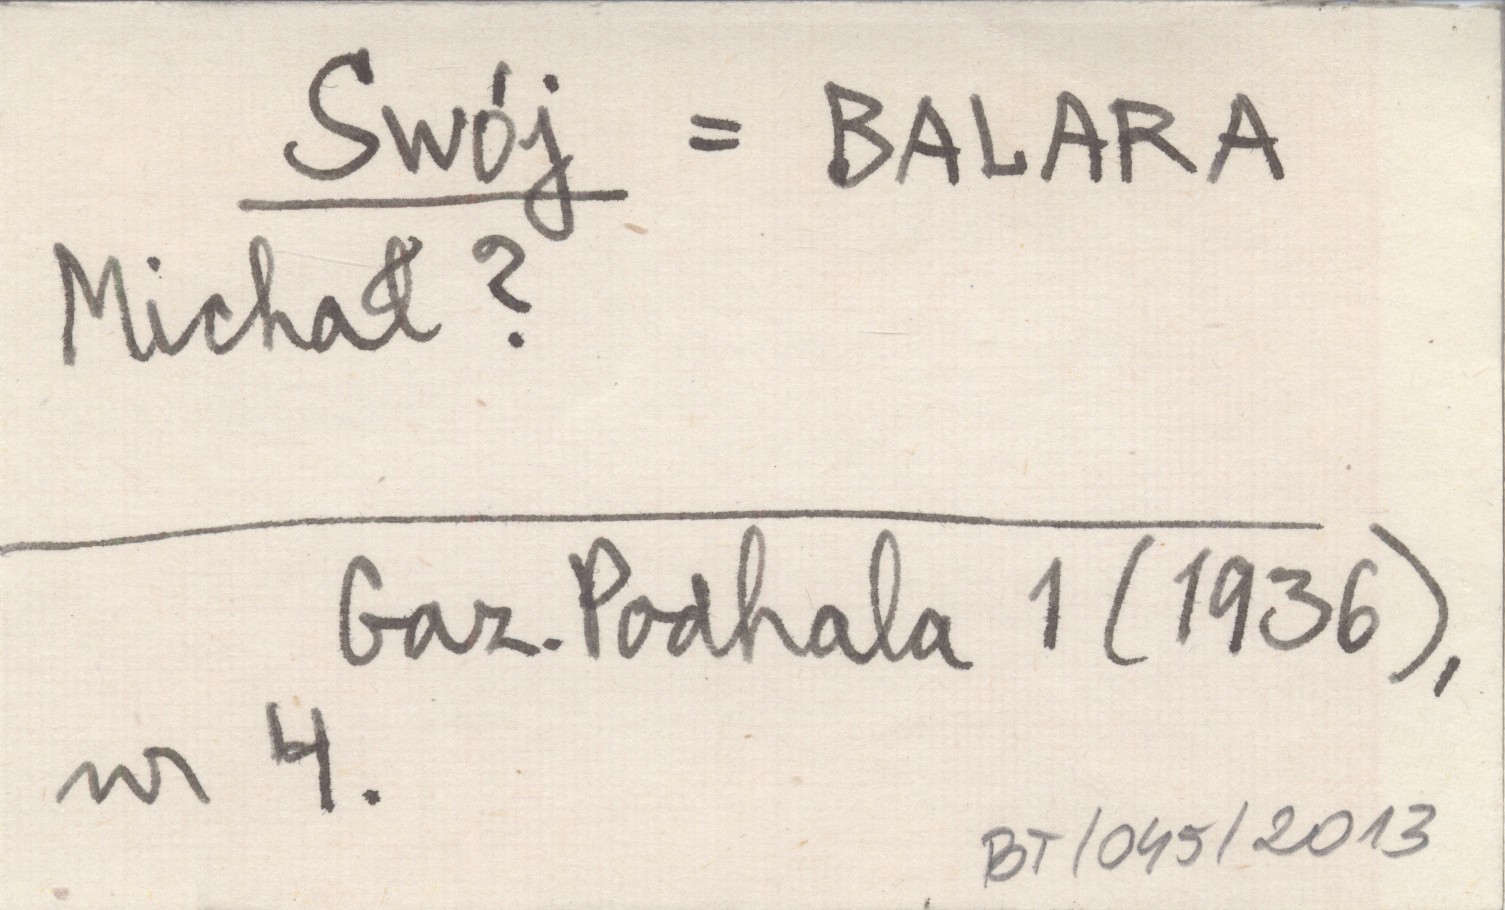 Swój = BALARA
Michał?
Gaz. Podhala 1 (1936),
nr 4.
BT/045/2013